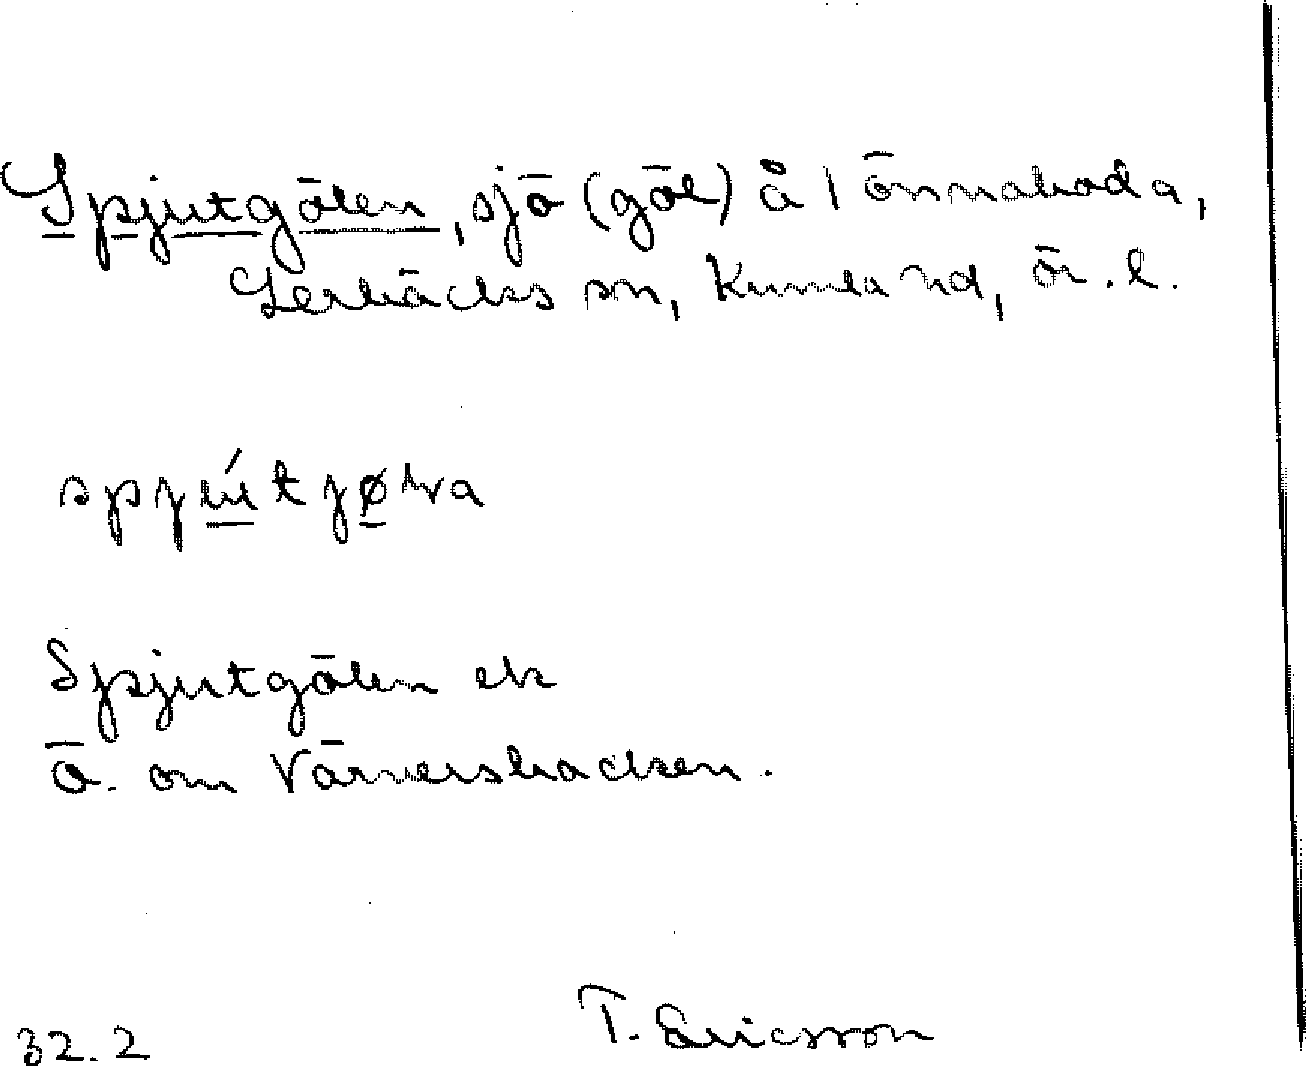 Spjutgölen, sjö (göl) å Lönnaboda,
Lerbäcks sn, Kumla hd, ör. l.
Spjutgölen ek
ö. om Värnersbacken.
32.2 T. Ericsson